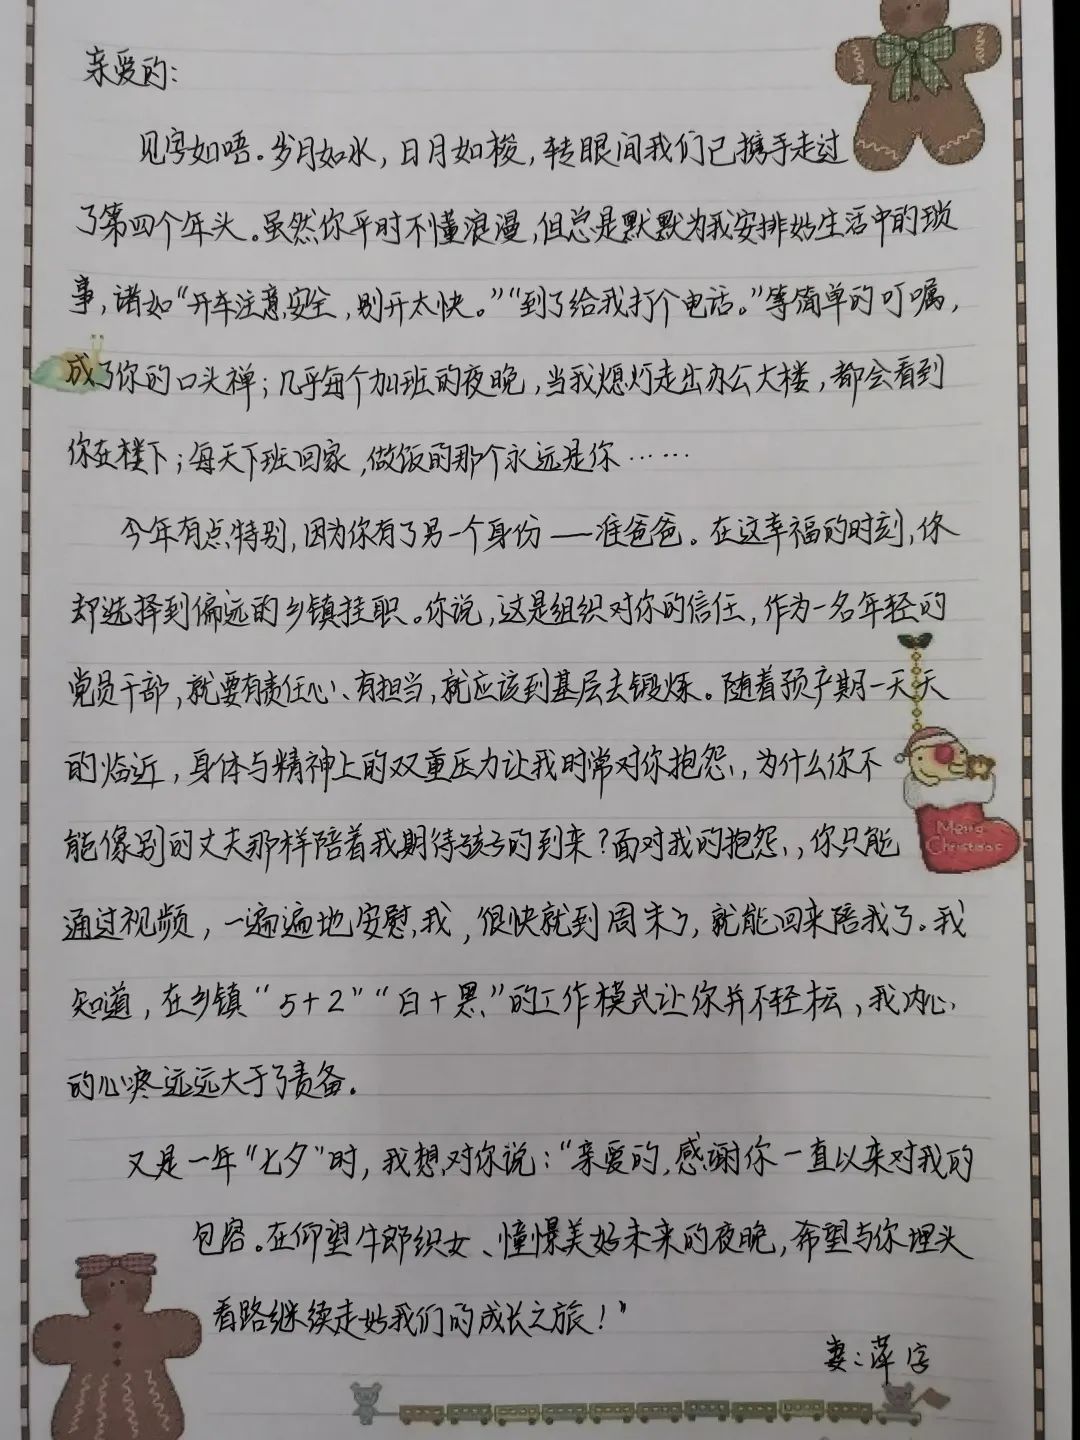 亲爱的：
见字如唔。岁月如水，日月如梭，转眼间我们已携手走过
了第四个年头。虽然你平时不懂浪漫，但总是默默为我安排好生活中的琐
事，诸如“开车注意安全，别开太快。”“到了给我打个电话。”等简单的叮嘱，
成了你的口头禅；几乎每个加班的夜晚，当我熄灯走出办公大楼，都会看到
你在楼下；每天下班回家，做饭的那个永远是你……
今年有点特别，因为你有了另一个身份——准爸爸。在这幸福的时刻，你
却选择到偏远的乡镇挂职。你说，这是组织对你的信任，作为一名年轻的
党员干部，就要有责任心、有担当，就应该到基层去锻炼。随着预产期一天天
的临近，身体与精神上的双重压力让我时常对你抱怨，为什么你不
能像别的丈夫那样陪着我期待孩子的到来？面对我的抱怨，你只能
通过视频，一遍遍地安慰我，很快就到周末了，就能回来陪我了。我
知道，在乡镇“5+2”“白+黑”的工作模式让你并不轻松，我内心
的心疼远远大于了责备。
又是一年“七夕”时，我想对你说：“亲爱的，感谢你一直以来对我的
包容。在仰望牛郎织女、憧憬美好未来的夜晚，希望与你埋头
看路继续走好我们的成长之旅！”
妻：萍字
Merry
Christmas